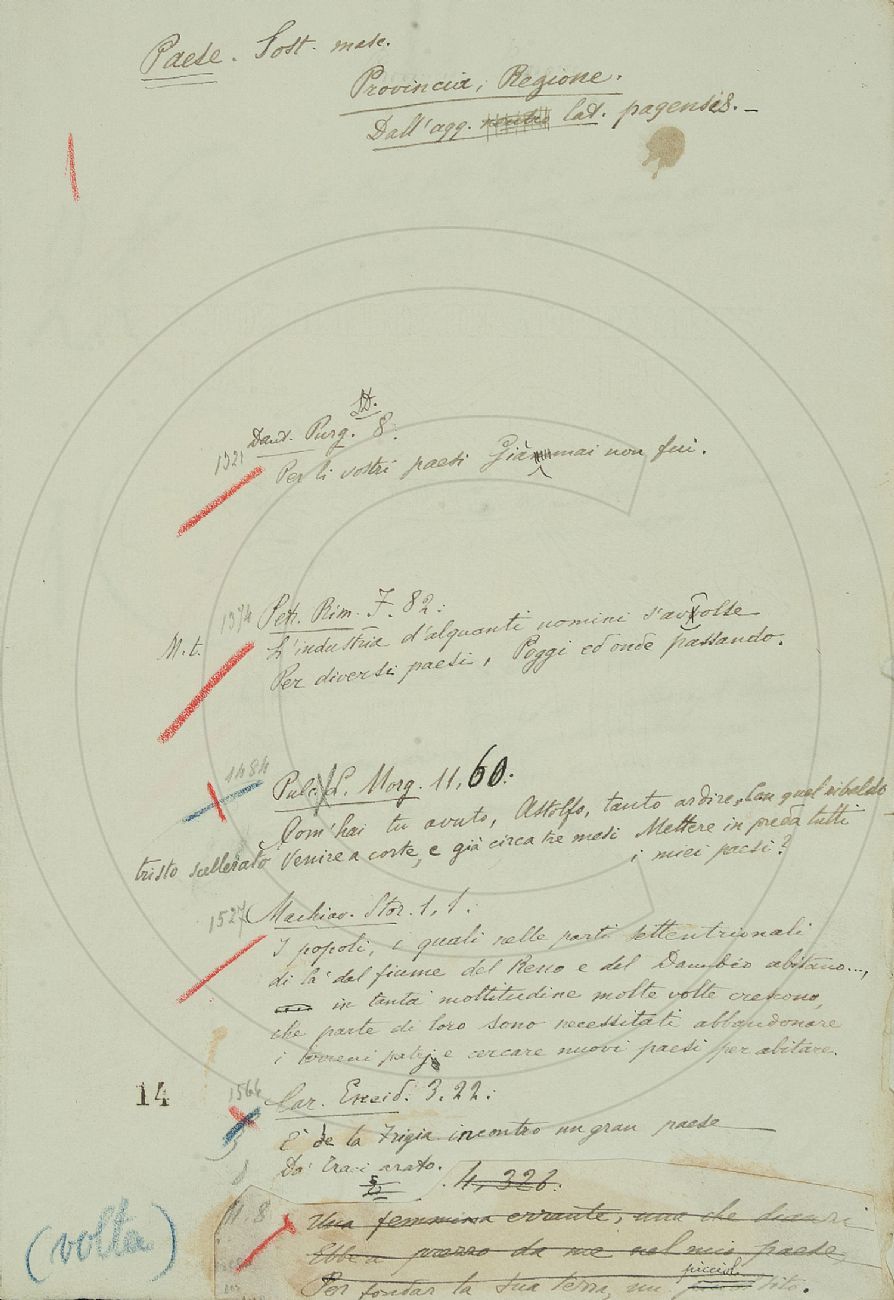 Paese. Sost. masc.
Provincia, Regione.
Dall'agg. neutro lat. pagensis.—
Dant. Purg. 8:
1321
Per li vostri paesi Giammai non fui.
1374
Petr. Rim. I. 82:
M.t.
L'industria d'alquanti uomini s'avvolse
Per diversi paesi, Poggi ed onde passando.
1484
Pulc. L. Morg. 11,60:
Com'hai tu avuto, Astolfo, tanto ardire, Can quel ribaldo
tristo scellerato Venire a corte, e già circa tre mesi Mettere in preda tutti
i miei paesi?
1527
Machiav. Stor. 1, 1:
I popoli, i quali nelle parti settentrionali
di là del fiume del Reno e del Danubio abitano...,
in tanta moltitudine molte volte crescono,
che parte di loro sono necessitati abbandonare
i terreni patrj, e cercare nuovi paesi per abitare.
14
1566
Car. Eneid. 3.22:
È de la Frigia incontro un gran paese
Da' Traci arato.
4,326:
Una femmina errante, una che dianzi
Ebbe a prezzo da me nel mio paese,
Per fondar la sua terra, un picciol sito.
(volta)